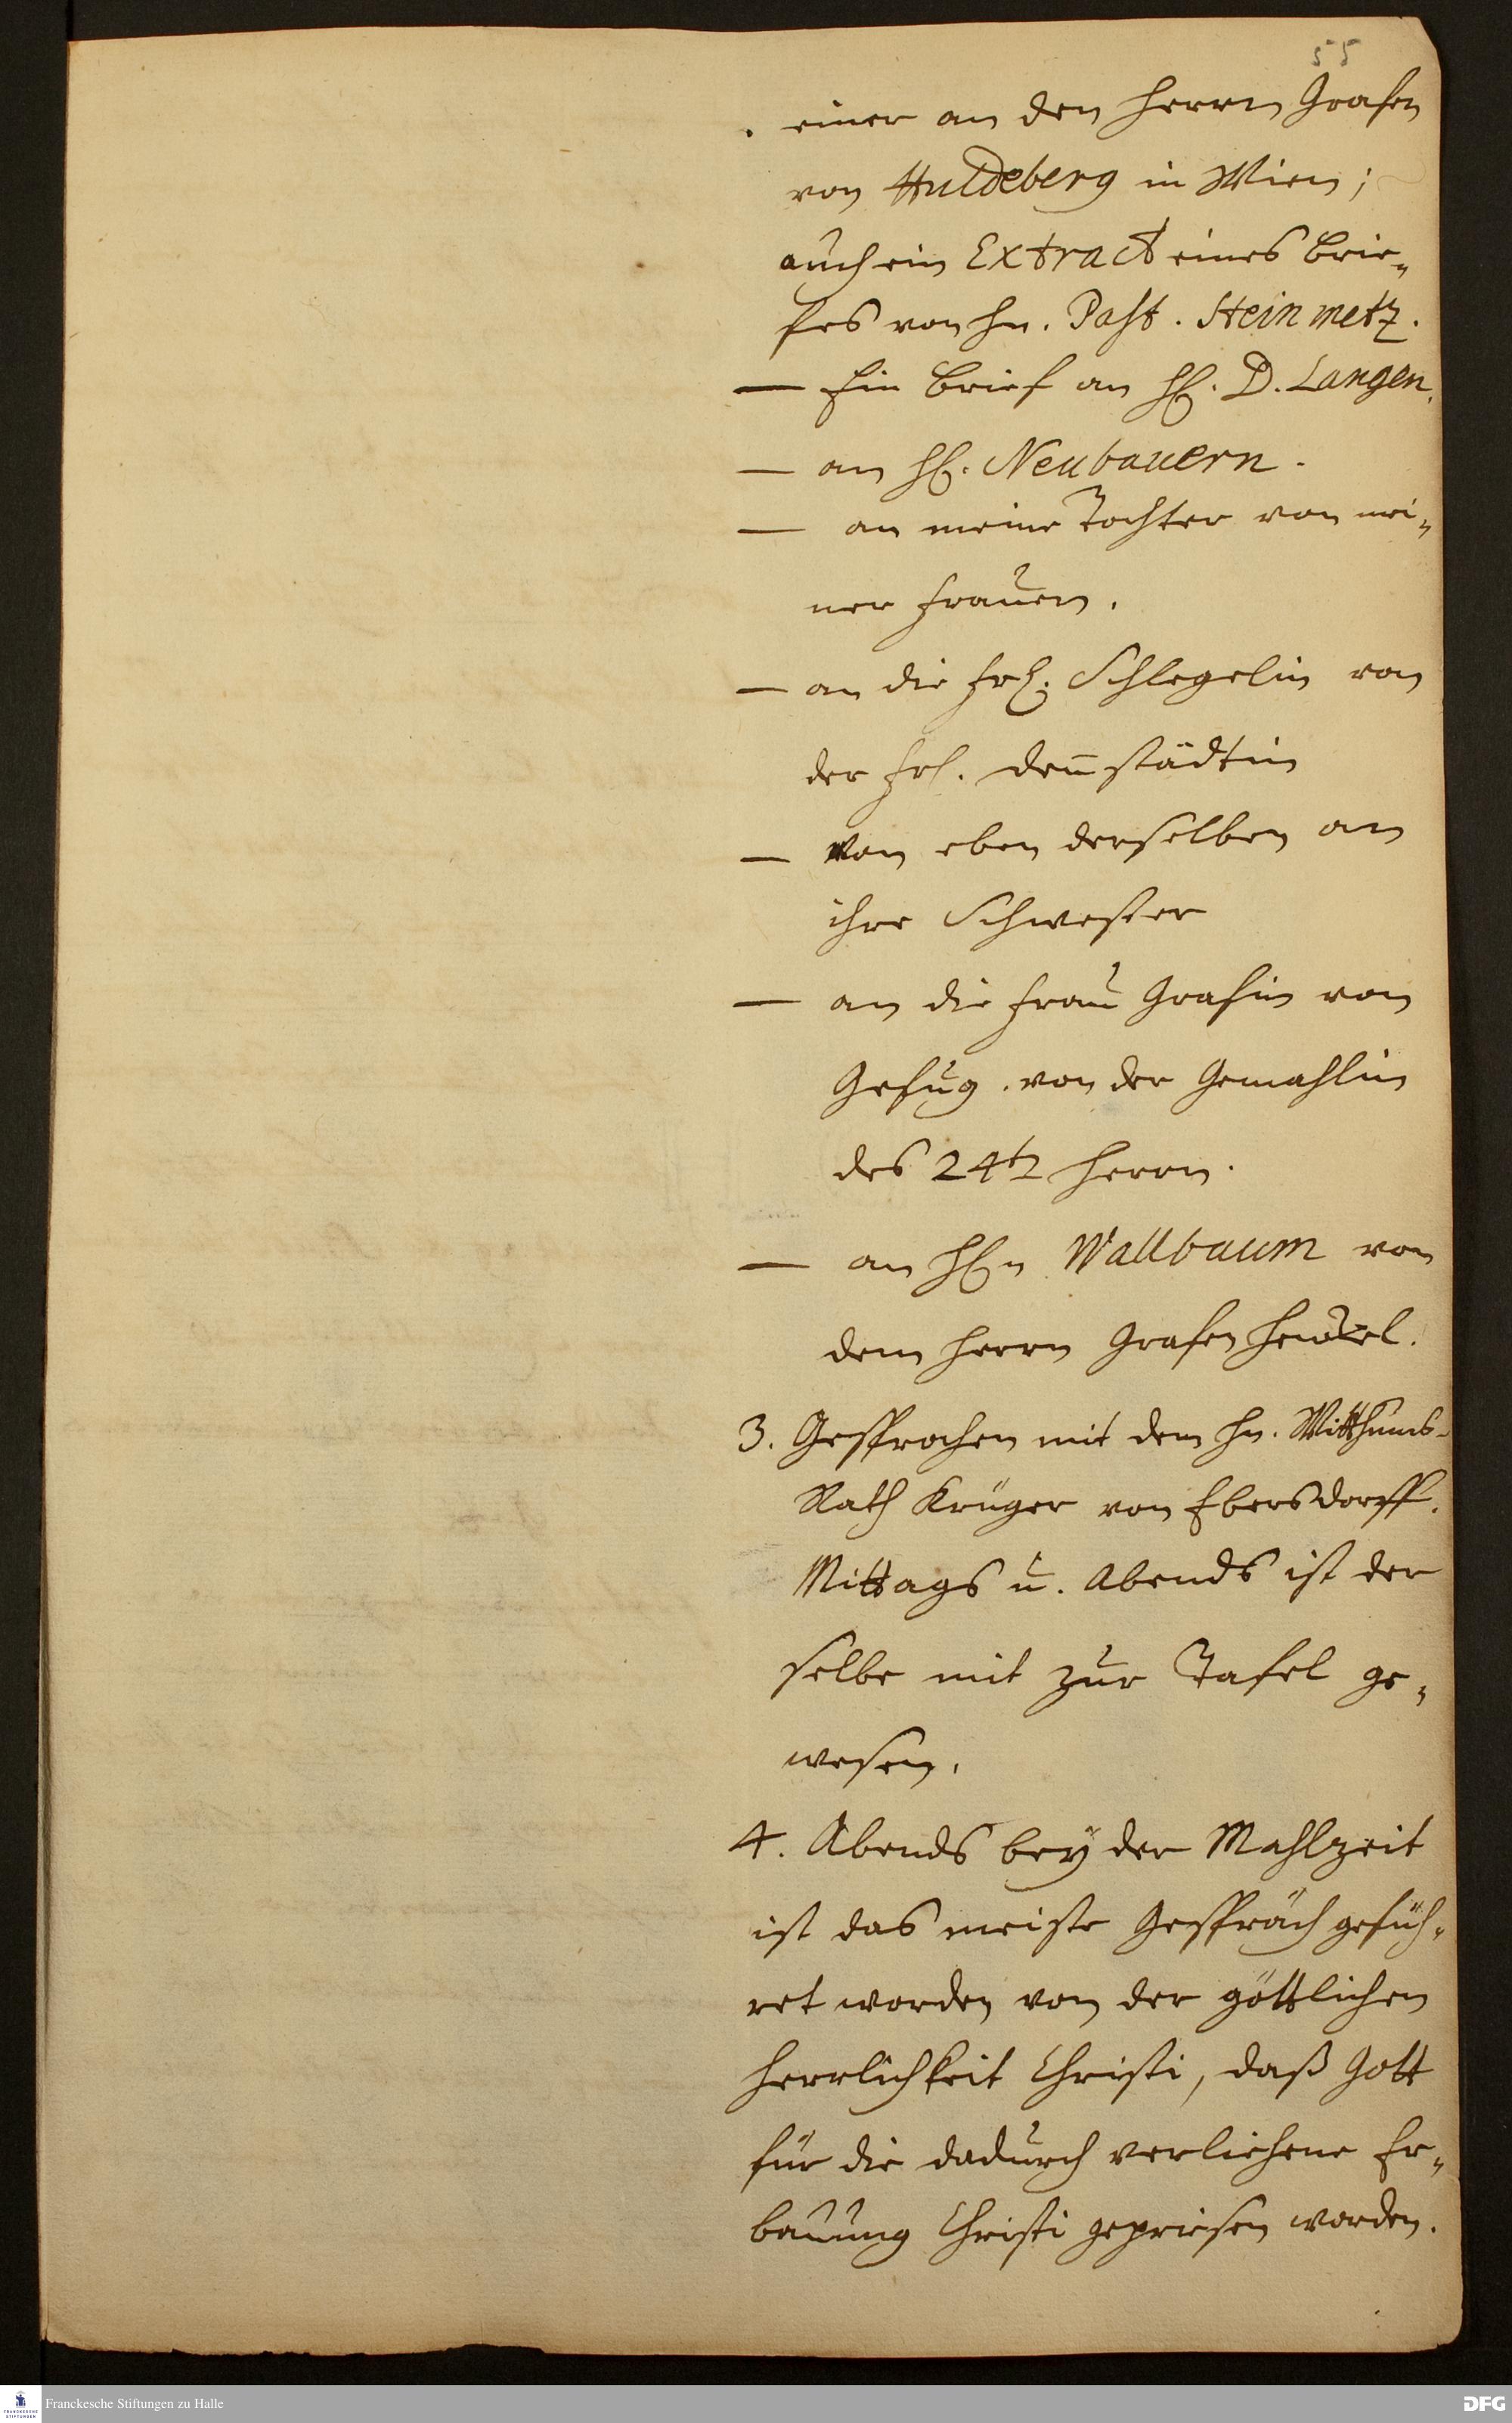 55
einer an den Herrn Grafen
von Huldeberg in Wien;
auch ein Extract eines Brie-
fes von Hn. Past. Steinmetz.
— Ein Brief an H. D. Langen.
— an H. Neubauern.
— an meine Tochter von mei-
ner Frauen.
— an die Frl. Schlegelin von
der Frl. Den̄städtin
— von eben derselben an
ihre Schwester
— an die Frau Grafin von
Gefug. von der Gemahlin
des 24t Herrn.
— an Hn Wallbaum von
dem Herrn Grafen Henckel.
3. Gesprochen mit dem Hn. Witthums-
Rath Krüger von Ebersdorff.
Mittags u. Abends ist der
selbe mit zur Tafel ge-
wesen.
4. Abends bey der Mahlzeit
ist das meiste Gespräch gefüh-
ret worden von der göttlichen
Herrlichkeit Christi, daß Gott
für die dadurch verliehene Er-
bauung Christi gepriesen worden.
Franckesche Stiftungen zu Halle
DFG